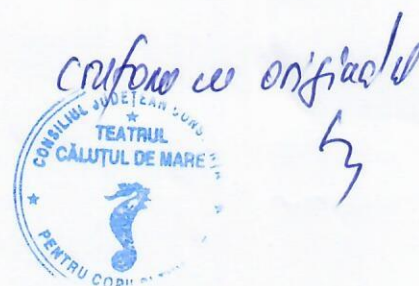 conform cu originalul
CONSILIUL JUDEȚEAN CONS
TEATRUL
CĂLUȚUL DE MARE
PENTRU COPII